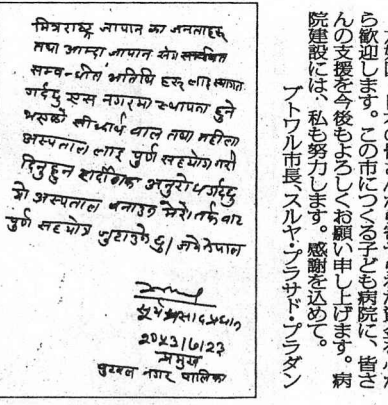 मित्रराष्ट्र जापान का जनताहरु
तथा आम्दा जापान संग सम्बन्धित
अतिथि हरु लाई स्वागत
गर्दछु यस नगरमा स्थापना हुने
सिद्धार्थ बाल तथा महिला
अस्पताल लाई पूर्ण सहयोग गरी
दिनुहुन हार्दिक अनुरोध गर्दछु
यो अस्पताल बनाउन मेरो तर्फ बाट
पूर्ण सहयोग जुटाउने छु। जय नेपाल
सूर्य प्रसाद प्रधान
2053/6/23
प्रमुख
बुटवल नगर पालिका
ら歓迎します。この市につくる子ども病院に、皆さ
んの支援を今後もよろしくお願い申し上げます。病
院建設には、私も努力します。感謝を込めて。
ブトワル市長、スルヤ・プラサド・プラダン